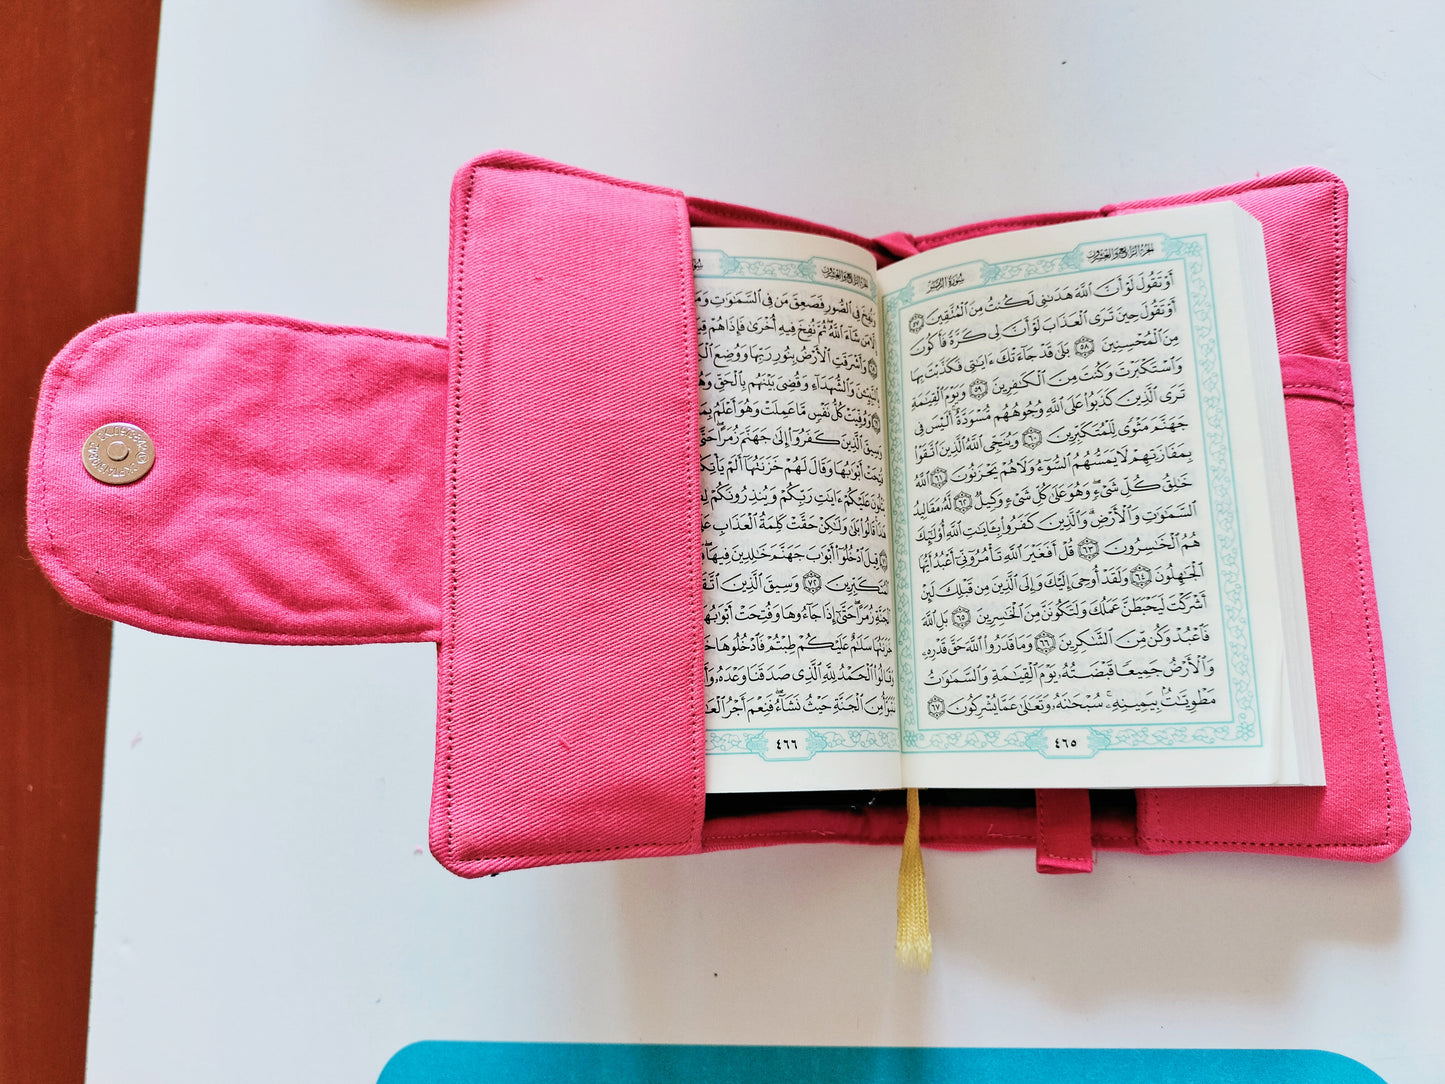 الجزء الرابع والعشرون
سورة الزمر
أَوْ تَقُولَ لَوْ أَنَّ ٱللَّهَ هَدَىٰنِى لَكُنتُ مِنَ ٱلْمُتَّقِينَ ٥٧
أَوْ تَقُولَ حِينَ تَرَى ٱلْعَذَابَ لَوْ أَنَّ لِى كَرَّةً فَأَكُونَ
مِنَ ٱلْمُحْسِنِينَ ٥٨ بَلَىٰ قَدْ جَآءَتْكَ ءَايَٰتِى فَكَذَّبْتَ بِهَا
وَٱسْتَكْبَرْتَ وَكُنتَ مِنَ ٱلْكَٰفِرِينَ ٥٩ وَيَوْمَ ٱلْقِيَٰمَةِ
تَرَى ٱلَّذِينَ كَذَبُوا۟ عَلَى ٱللَّهِ وُجُوهُهُم مُّسْوَدَّةٌ أَلَيْسَ فِى
جَهَنَّمَ مَثْوًى لِّلْمُتَكَبِّرِينَ ٦٠ وَيُنَجِّى ٱللَّهُ ٱلَّذِينَ ٱتَّقَوْا۟
بِمَفَازَتِهِمْ لَا يَمَسُّهُمُ ٱلسُّوٓءُ وَلَا هُمْ يَحْزَنُونَ ٦١ ٱللَّهُ
خَٰلِقُ كُلِّ شَىْءٍ وَهُوَ عَلَىٰ كُلِّ شَىْءٍ وَكِيلٌ ٦٢ لَّهُۥ مَقَالِيدُ
ٱلسَّمَٰوَٰتِ وَٱلْأَرْضِ وَٱلَّذِينَ كَفَرُوا۟ بِـَٔايَٰتِ ٱللَّهِ أُو۟لَٰٓئِكَ
هُمُ ٱلْخَٰسِرُونَ ٦٣ قُلْ أَفَغَيْرَ ٱللَّهِ تَأْمُرُوٓنِّىٓ أَعْبُدُ أَيُّهَا
ٱلْجَٰهِلُونَ ٦٤ وَلَقَدْ أُوحِىَ إِلَيْكَ وَإِلَى ٱلَّذِينَ مِن قَبْلِكَ لَئِنْ
أَشْرَكْتَ لَيَحْبَطَنَّ عَمَلُكَ وَلَتَكُونَنَّ مِنَ ٱلْخَٰسِرِينَ ٦٥ بَلِ ٱللَّهَ
فَٱعْبُدْ وَكُن مِّنَ ٱلشَّٰكِرِينَ ٦٦ وَمَا قَدَرُوا۟ ٱللَّهَ حَقَّ قَدْرِهِۦ
وَٱلْأَرْضُ جَمِيعًا قَبْضَتُهُۥ يَوْمَ ٱلْقِيَٰمَةِ وَٱلسَّمَٰوَٰتُ
مَطْوِيَّٰتٌۢ بِيَمِينِهِۦ سُبْحَٰنَهُۥ وَتَعَٰلَىٰ عَمَّا يُشْرِكُونَ ٦٧
٤٦٥
الجزء الرابع والعشرون
وَنُفِخَ فِى ٱلصُّورِ فَصَعِقَ مَن فِى ٱلسَّمَٰوَٰتِ
مَن شَآءَ ٱللَّهُ ثُمَّ نُفِخَ فِيهِ أُخْرَىٰ فَإِذَا هُمْ
وَأَشْرَقَتِ ٱلْأَرْضُ بِنُورِ رَبِّهَا وَوُضِعَ
بِٱلنَّبِيِّـۧنَ وَٱلشُّهَدَآءِ وَقُضِىَ بَيْنَهُم بِٱلْحَقِّ
وَوُفِّيَتْ كُلُّ نَفْسٍ مَّا عَمِلَتْ وَهُوَ أَعْلَمُ
وَسِيقَ ٱلَّذِينَ كَفَرُوٓا۟ إِلَىٰ جَهَنَّمَ زُمَرًا
فُتِحَتْ أَبْوَٰبُهَا وَقَالَ لَهُمْ خَزَنَتُهَآ أَلَمْ
يَتْلُونَ عَلَيْكُمْ ءَايَٰتِ رَبِّكُمْ وَيُنذِرُونَكُمْ
هَٰذَا قَالُوا۟ بَلَىٰ وَلَٰكِنْ حَقَّتْ كَلِمَةُ ٱلْعَذَابِ
قِيلَ ٱدْخُلُوٓا۟ أَبْوَٰبَ جَهَنَّمَ خَٰلِدِينَ فِيهَا
ٱلْمُتَكَبِّرِينَ ٧٢ وَسِيقَ ٱلَّذِينَ
ٱلْجَنَّةِ زُمَرًا حَتَّىٰٓ إِذَا جَآءُوهَا وَفُتِحَتْ
خَزَنَتُهَا سَلَٰمٌ عَلَيْكُمْ طِبْتُمْ فَٱدْخُلُوهَا
وَقَالُوا۟ ٱلْحَمْدُ لِلَّهِ ٱلَّذِى صَدَقَنَا وَعْدَهُۥ
مِنَ ٱلْجَنَّةِ حَيْثُ نَشَآءُ فَنِعْمَ أَجْرُ
٤٦٦